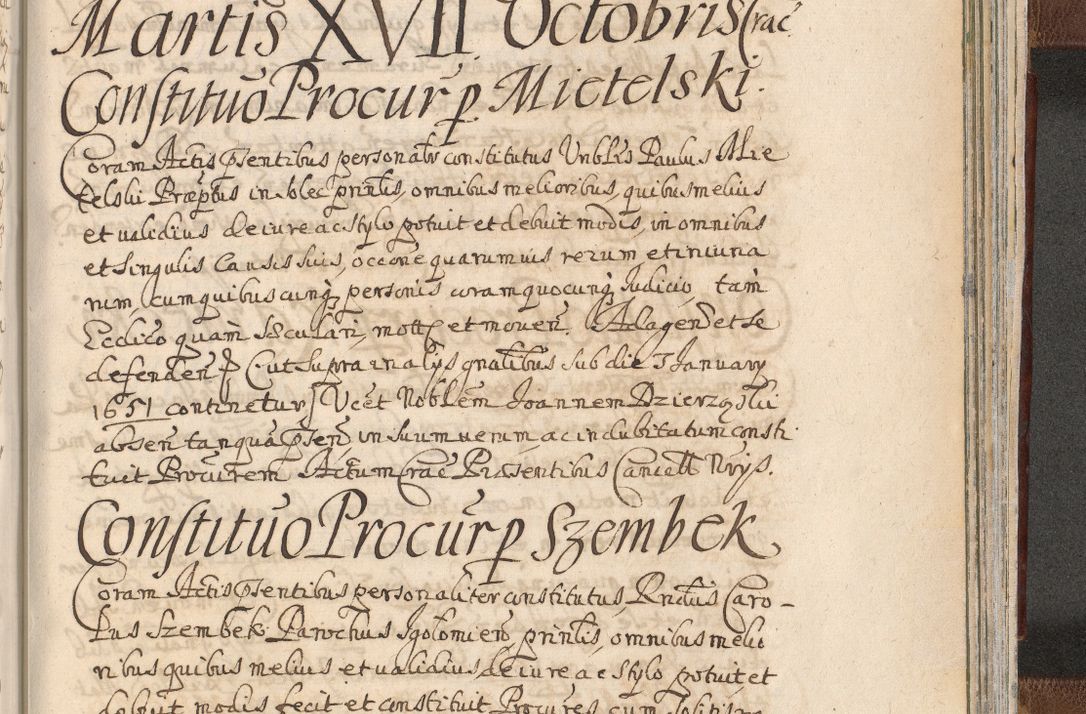 Martis XVII Octobris Crac
Constituo Procur p. Mietelski.
Coram Actis psentibus personalr constitutus Unbles Paulus Mie
telski Præptus in blec prinlis, omnibus melioribus, quibus melius
et validius de iure ac stylo potuit et debuit modis, in omnibus
et singulis Causis suis, occone quarumvis rerum et iniuria
rum, cum quibuscunq personis coram quocunq Judicio, tam
Ecclico quam sæculari, mott et moven. Ad agend et se
defenden p Cut supra in alys gnalibus sub die 3 January
1651 continetur Ucet Noblem Joannem Dzierzgski
absen tanqua psen in suum verum ac indubitatum consti
tuit Procurem Actum Crac Præsentibus Cancell Nrys.
Constituo Procur p Szembek
Coram Actis psentibus personaliter constitutus, Rndus Caro-
lus Szembek Parochus Igolomien, prinlis, omnibus melio
ribus quibus melius et validius de iure ac stylo potuit et
debuit modis fecit et constituit Procures cum solitis